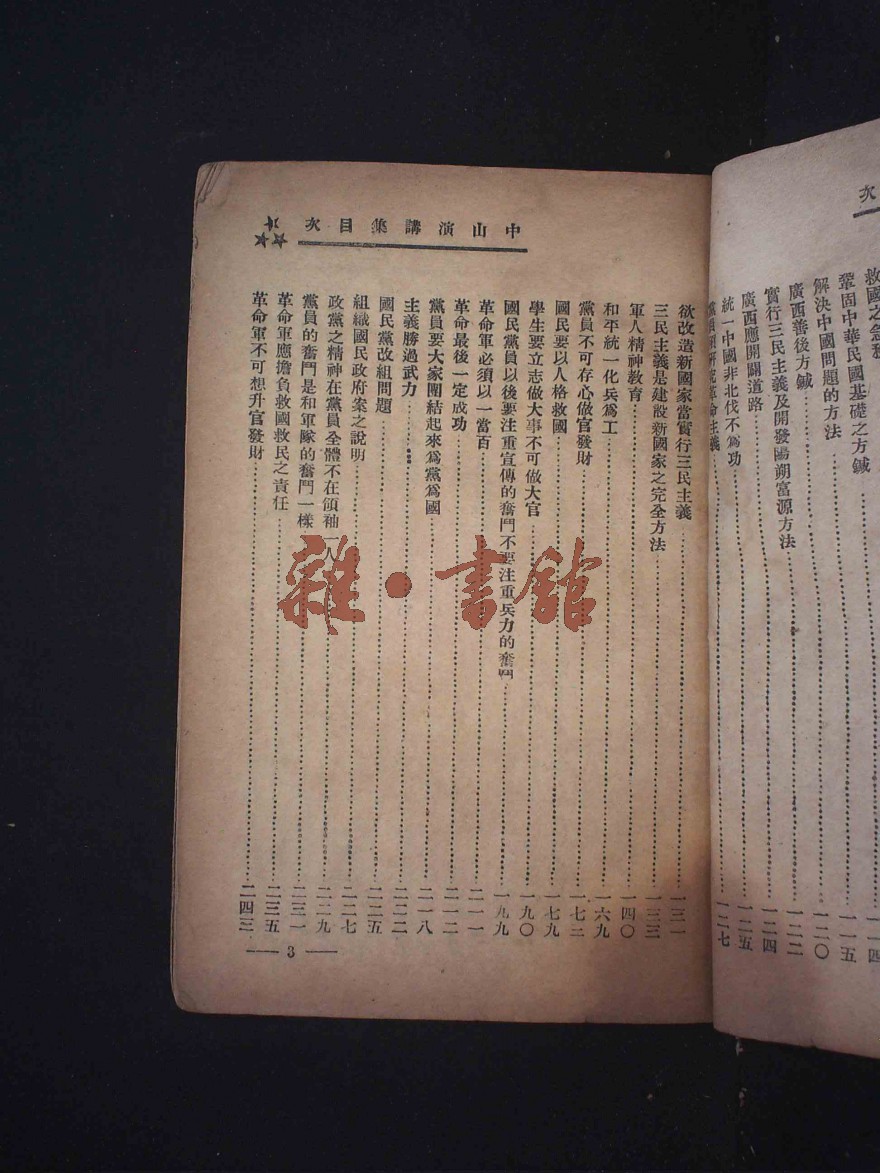 次
救國之急務
鞏固中華民國基礎之方鍼……一一四
解決中國問題的方法……一一五
廣西善後方鍼……一二〇
實行三民主義及開發陽朔富源方法……一二二
廣西應開闢道路……一二四
統一中國非北伐不爲功……一二五
黨員須研究革命主義……一二七
中山演講集目次
欲改造新國家當實行三民主義……一三一
三民主義是建設新國家之完全方法……一三三
軍人精神教育……一四〇
和平統一化兵爲工……一六九
黨員不可存心做官發財……一七二
國民要以人格救國……一七九
學生要立志做大事不可做大官……一九〇
國民黨員以後要注重宣傳的奮鬥不要注重兵力的奮鬥……一九九
革命軍必須以一當百……二一一
革命最後一定成功……二一二
黨員要大家團結起來爲黨爲國……二一八
主義勝過武力……二二二
國民黨改組問題……二二五
組織國民政府案之說明……二二七
政黨之精神在黨員全體不在領袖一人……二二九
黨員的奮鬥是和軍隊的奮鬥一樣……二三一
革命軍應擔負救國救民之責任……二三五
革命軍不可想升官發財……二四三
— 3 —
雜·書館